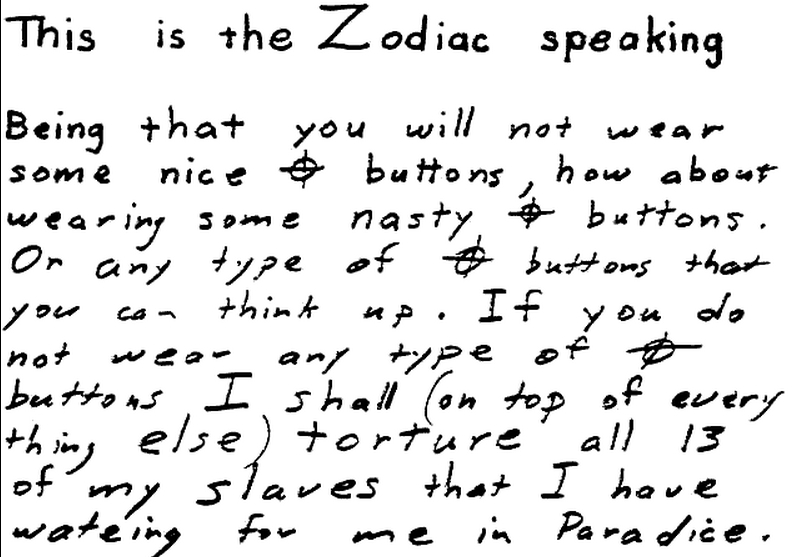 This is the Zodiac speaking
Being that you will not wear
some nice ⌖ buttons, how about
wearing some nasty ⌖ buttons.
Or any type of ⌖ buttons that
you can think up. If you do
not wear any type of ⌖
buttons I shall (on top of every
thing else) torture all 13
of my slaves that I have
wateing for me in Paradice.